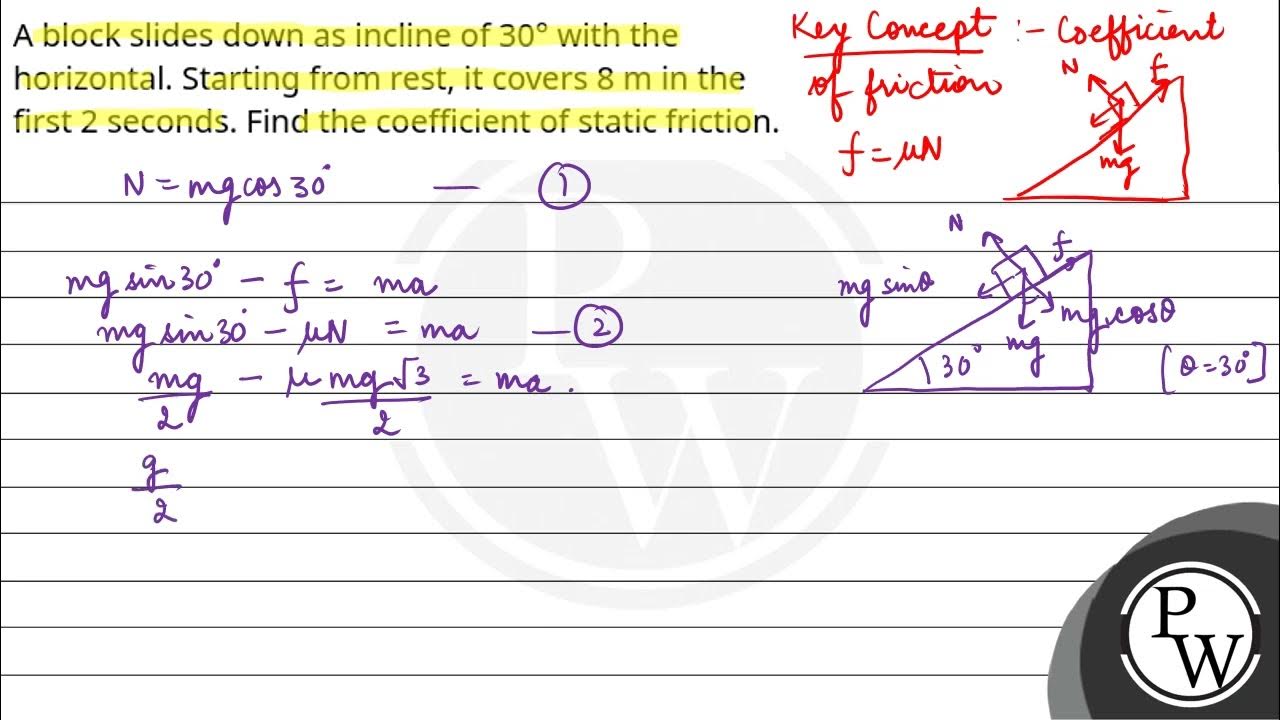 A block slides down as incline of 30° with the
horizontal. Starting from rest, it covers 8 m in the
first 2 seconds. Find the coefficient of static friction.
Key Concept :- Coefficient
of friction
f = μN
N
f
mg
N = mg cos 30° — ①
mg sin 30° - f = ma
mg sin 30° - μN = ma — ②
mg/2 - μ mg√3/2 = ma.
g/2
N
f
mg sinθ
mg cosθ
mg
30°
[θ = 30°]
PW
PW